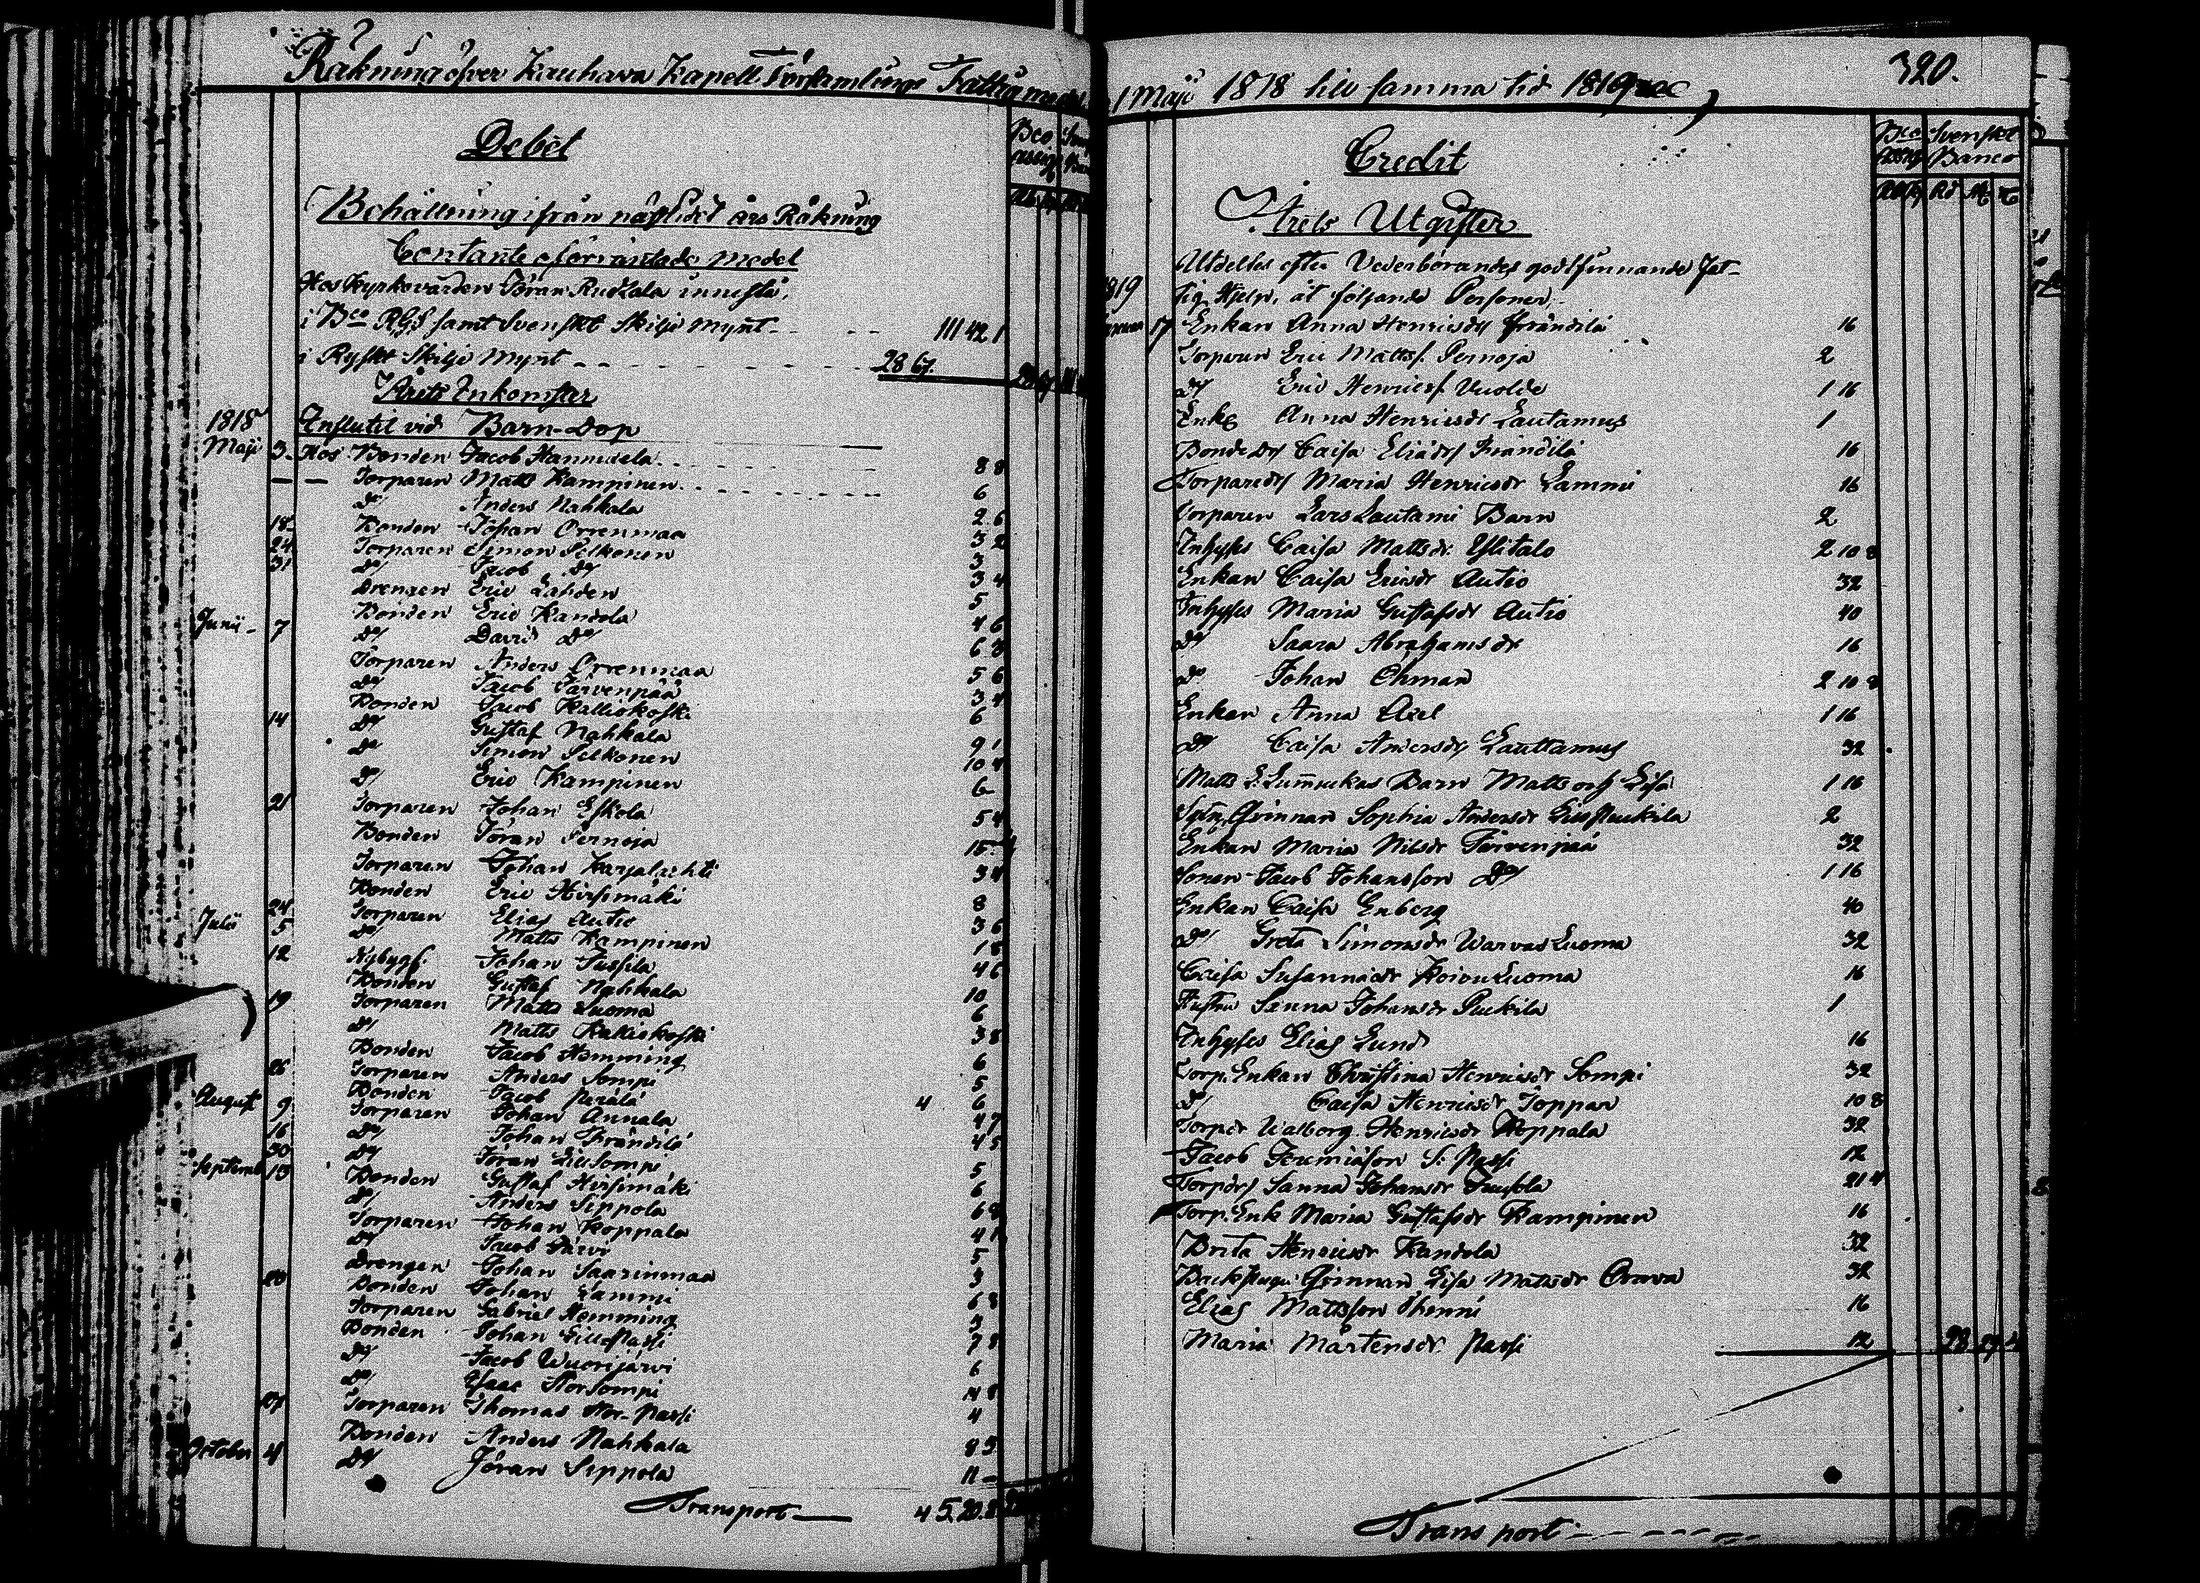 Räkning öfver Kauhava Kapell Församlings Fattig medel
Debet
Bco Assig
Behållning ifrån näst sidst års Räkning
Contante oförräntade medel
Hos Kyrkovärden Jöran Ruckala innestå,
i Bco RGS samt Svenskt Skilje Mynt 111 42 1
i Ryskt Skilje Mynt 28 67.
Årets Inkomster
1818 Influtit vid Barn-Dop
Maji 3. Hos Bonden Jacob Hannuxela 8 8
Torparen Matts Kampinen 6
Do Anders Nahkala 2 6
18 Bonden Johan Orrenmaa 3 2
24 Torparen Simon Pelkonen 3
31 Do Jacob Do 3 4
Drengen Eric Lahden 5
Bonden Eric Kandola 4 6
Junii 7 Do David Do 6 8
Torparen Anders Orrenmaa 5 6
Do Jacob Järvenpää 3 4
Bonden Jacob Kalliokoski 6
14 Do Gustaf Nahkala 9 1
Do Simon Pelkonen 10 4
Do Eric Kampinen 6
21 Torparen Johan Eskola 5 4
Bonden Jöran Pernoja 15
Torparen Johan Karjalachti 3 4
Bonden Eric Hirsimäki 8
24 Torparen Elias Autio 3 6
Julii 5 Do Matts Kampinen 1 8
12 Nybygg. Johan Jussila 4 6
Bonden Gustaf Nahkala 10
19 Torparen Matts Luoma 6
Do Matts Kalliokoski 3 8
Bonden Jacob Hemming 6
26 Torparen Anders Sompi 5
Bonden Jacob Perälä 4 6
August 9 Torparen Johan Annala 4 7
16 Do Johan Frändilä 4 5
30 Do Jöran Lillsompi 5
Septemb 13 Bonden Gustaf Hirsimäki 6
Do Anders Sippola 6 8
Torparen Johan Koppala 4 1
Do Jacob Järvi 5
Drengen Johan Saarinmaa 3
20 Bonden Johan Lammi 6 8
Torparen Gabriel Hemming 3
Bonden Johan Lill-Passi 7 8
Do Jacob Wuorijärvi 6
Do Isaac Storsompi 14 8
27 Torparen Thomas Stor-Passi 4
Bonden Anders Nahkala 8 3
October 4 Do Jöran Sippola 11
Transport 4 5. 20. 8
1 Maji 1818 till samma tid 1819
320.
Credit
Bco Assig Svenskt Banco
Årets Utgifter
Utdeltes efter Vederbörandes godtfinnande Fat-
1819 tig Hjelp, åt följande Personer,
17 Enkan Anna Henricsdr Frändilä 16
Torparen Eric Mattss. Pernoja 2
Do Eric Henricss. Vuolde 1 16
Enk Anna Henricsdr Lautamus 1
Bonde Dr Caisa Eliædr Frändilä 16
Torparedr Maria Henricsdr Lammi 16
Torparen Lars Lautami Barn 2
Inhyses Caisa Mattsdr. Ylitalo 2 10 8
Enkan Caisa Ericsdr Autio 32
Inhyses Maria Gustafsdr Autio 40
Do Saara Abrahamsdr 16
Do Johan Öhman 2 10 8
Enkan Anna Axel 1 16
Do Caisa Andersdr Lauttamus 32
Matts L. Lummukas Barn Matts och Lisa 1 16
Qvinnan Sophia Andersdr Lill Puckila 2
Enkan Maria Nilsdr Järvenpää 32
Sonen Jacob Johansson Do 1 16
Enkan Caisa Enberg 40
Do Greta Simonsdr Warvas Luoma 32
Caisa Susannædr Koivu Luoma 16
Hustru Sanna Johansdr Puckila 1
Inhyses Elias Lund 16
Torp. Enkan Christina Henricsdr Sompi 32
Do Caisa Henricsdr Toppar 10 8
Torpdr Walborg Henricsdr Koppala 32
Jacob Jeremiæson S. Passi 12
Torpdr Sanna Johansdr 21 4
Torp. Enk Maria Gustafsdr Kampinen 16
Brita Henricsdr Kandola 32
Backstugu Qvinnan Lisa Mattsdr Orava 32
Elias Mattsson Thenni 16
Maria Mårtensdr. Passi 12 28 29 4
Transport